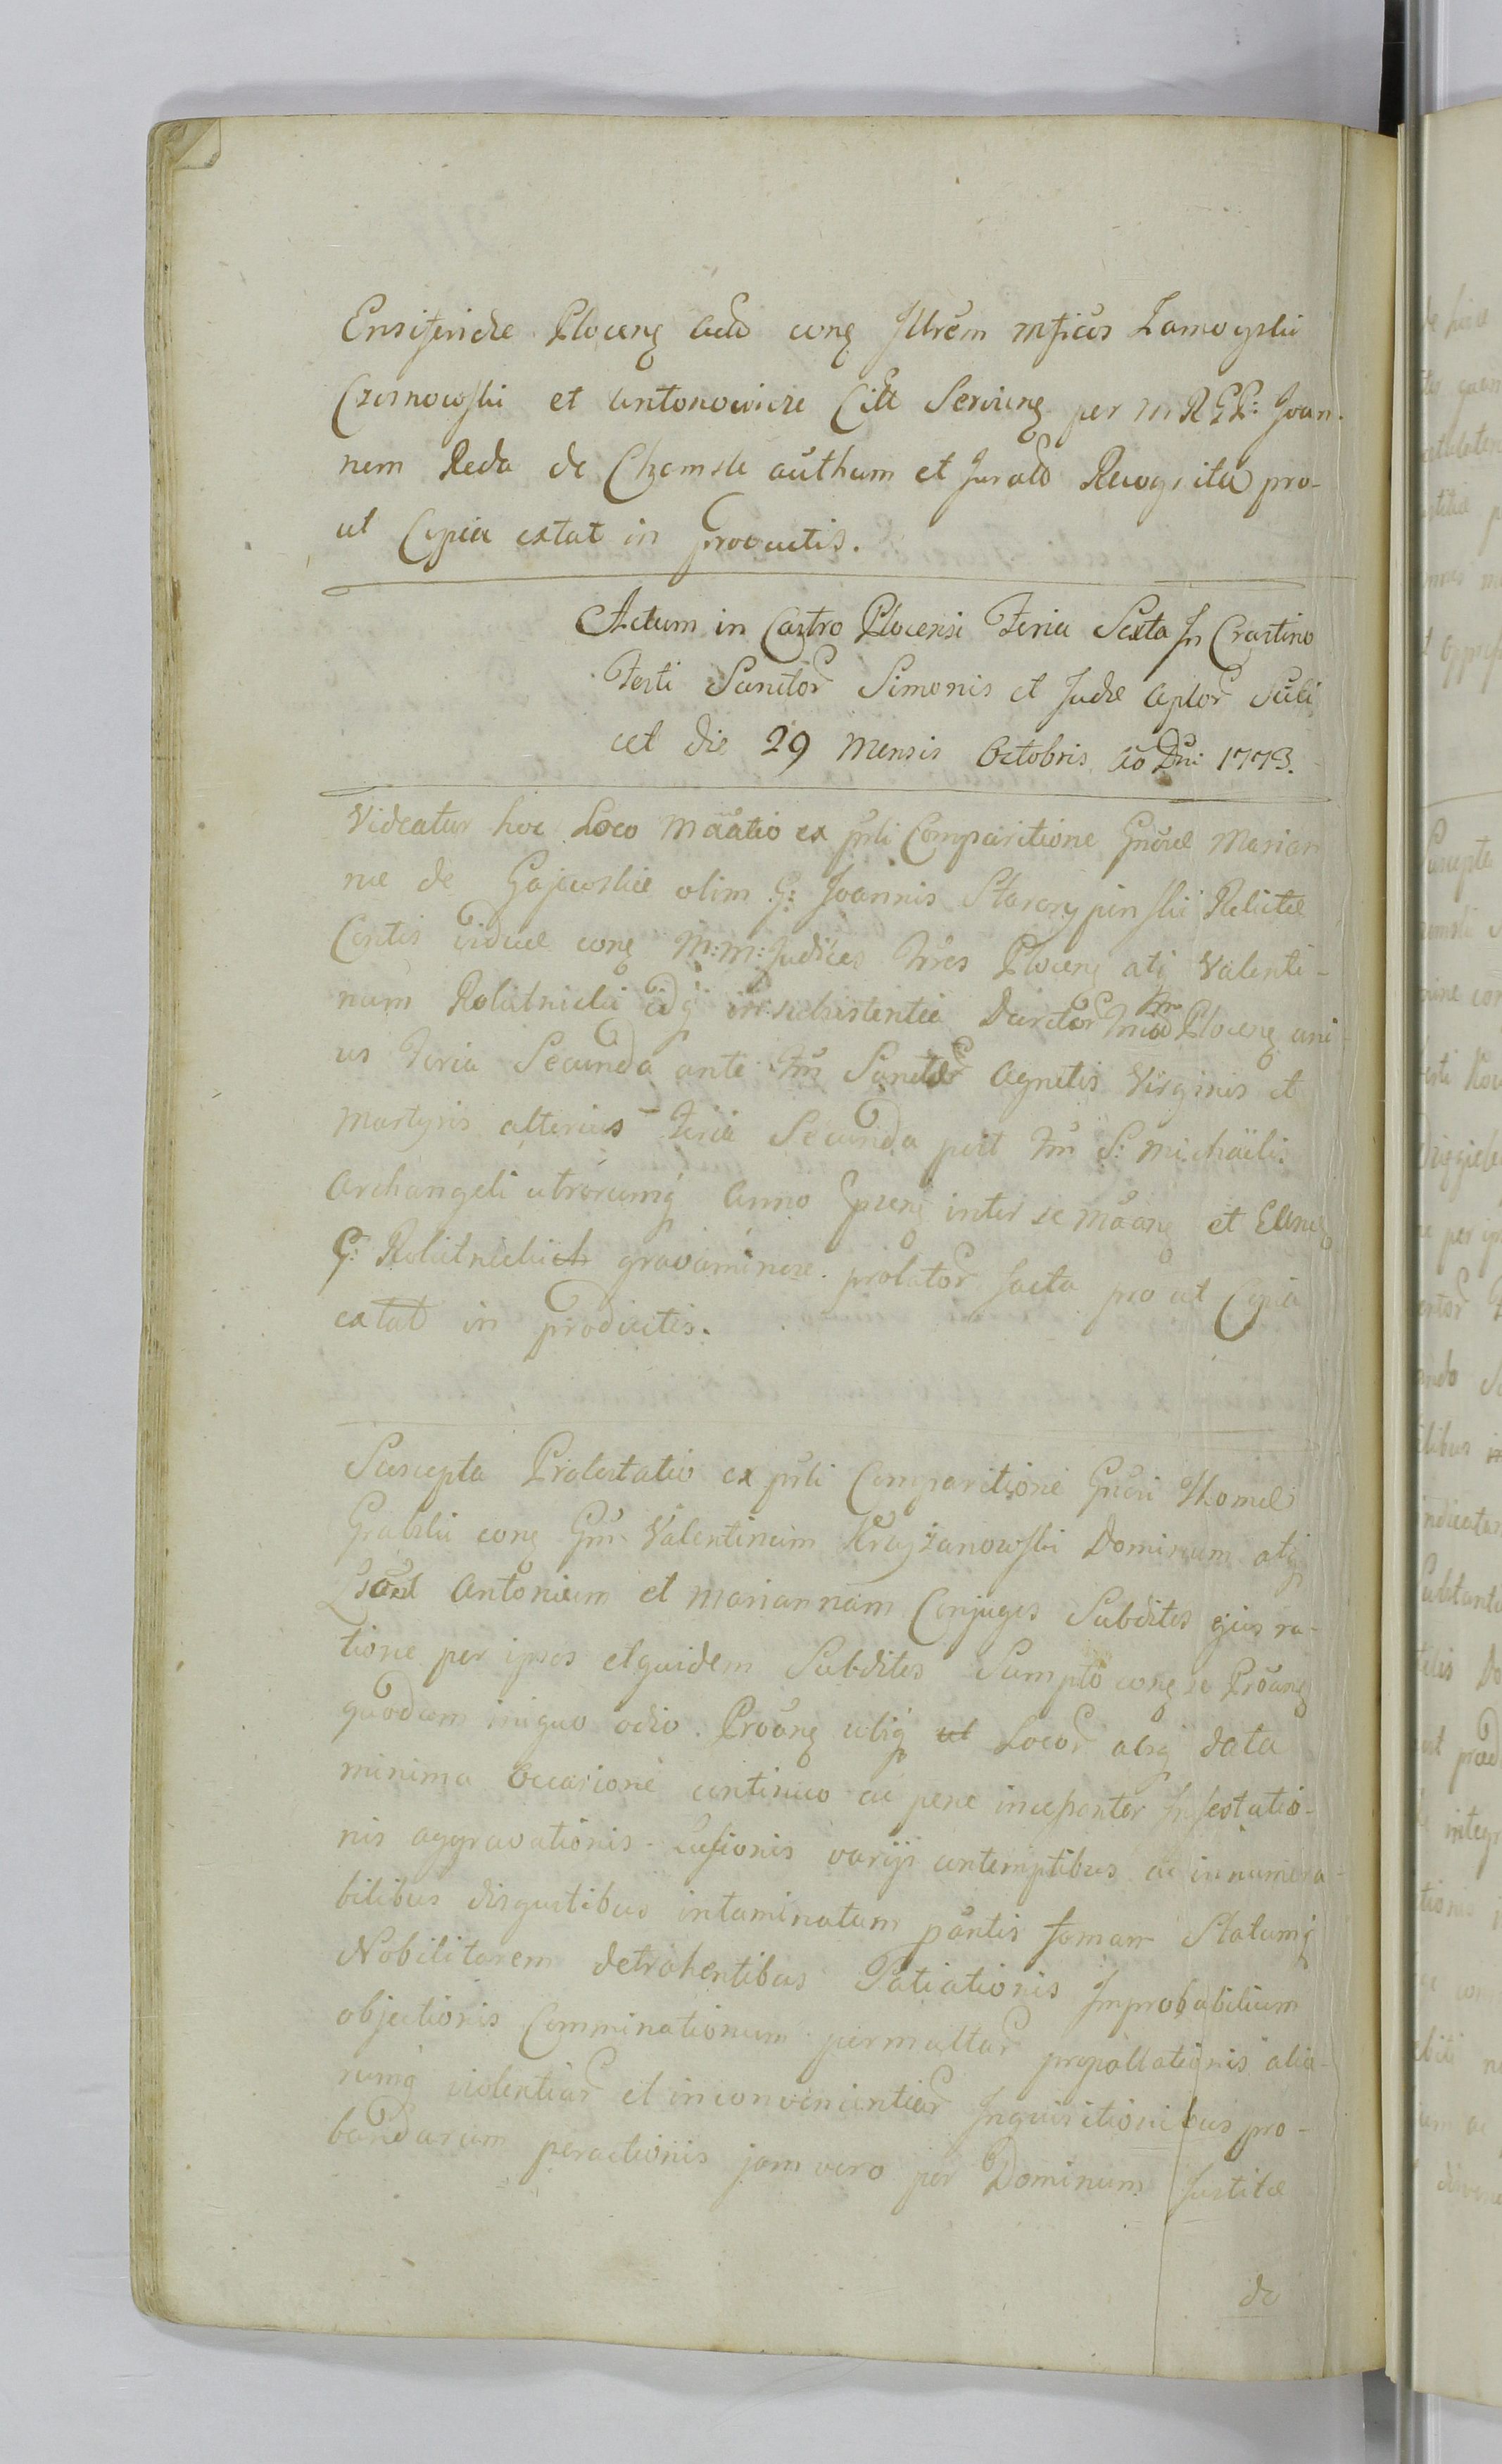 Ensiferidae Plocenẽ contẽ Jllrem mficos Zamoyski
Czosnowski et Antonowicze Citt Serviung per M R G L: Joan-
nem Reda de Chamsk authum et Jurato Recognita pro-
ut Copia extat in productis.
Actum in Castro Plocensi Feria Sexta In Crastino
Festi Sanctor Simonis et Judae Aplor scili
cet die 29 Mensis Octobris Ao Dni 1773.
Videatur hoc Loco Mãatio ex prli Comparitione Gnosae Marian
nae de Gajewskie olim G: Joannis Starorypinski Relictae
Contis viduae cong M:M: Judices Plocenẽ atq Valenti-
num Rolutnicki insubsistentia Plocenẽ uni-
us Feria Secunda ante Fm Sanctae Agnetis Virginis et
Martyris alterius Feria Secunda post Fm S: Michaeli
Archangeli utrorumq Anno pzenẽ inter se mãanẽ et
G: Rolutnicki gravamine prolator facta pro ut Copia
extat in productis.
Suscepta Protestatio ex prli Comparitione Gnosi Thomae
Grabski cong Gm Valentinum Krzyżanowski Dominum atq
Antonium et Mariannam Conjuges Subditos ejus ra-
tione per ipsos equidem Subditos Sumpto cong se Proanẽ
quodam iniquo odio Proanẽ ubiq ut Locor absq data
minima occasione continuo ac pene incessanter Infestatio-
nis aggravationis Laesionis variis contemptibus ac innumera-
bilibus disgustibus intaminatam pãntis famam Statumq
Nobilitarem detrahentibus Patiationis Improbabilium
objectionis Comminationum permultar propallationis alia-
rumq violentiar et inconvenientiar Inquisitionibus pro-
bandarum peractionis jam vero per Dominum Justitae
de